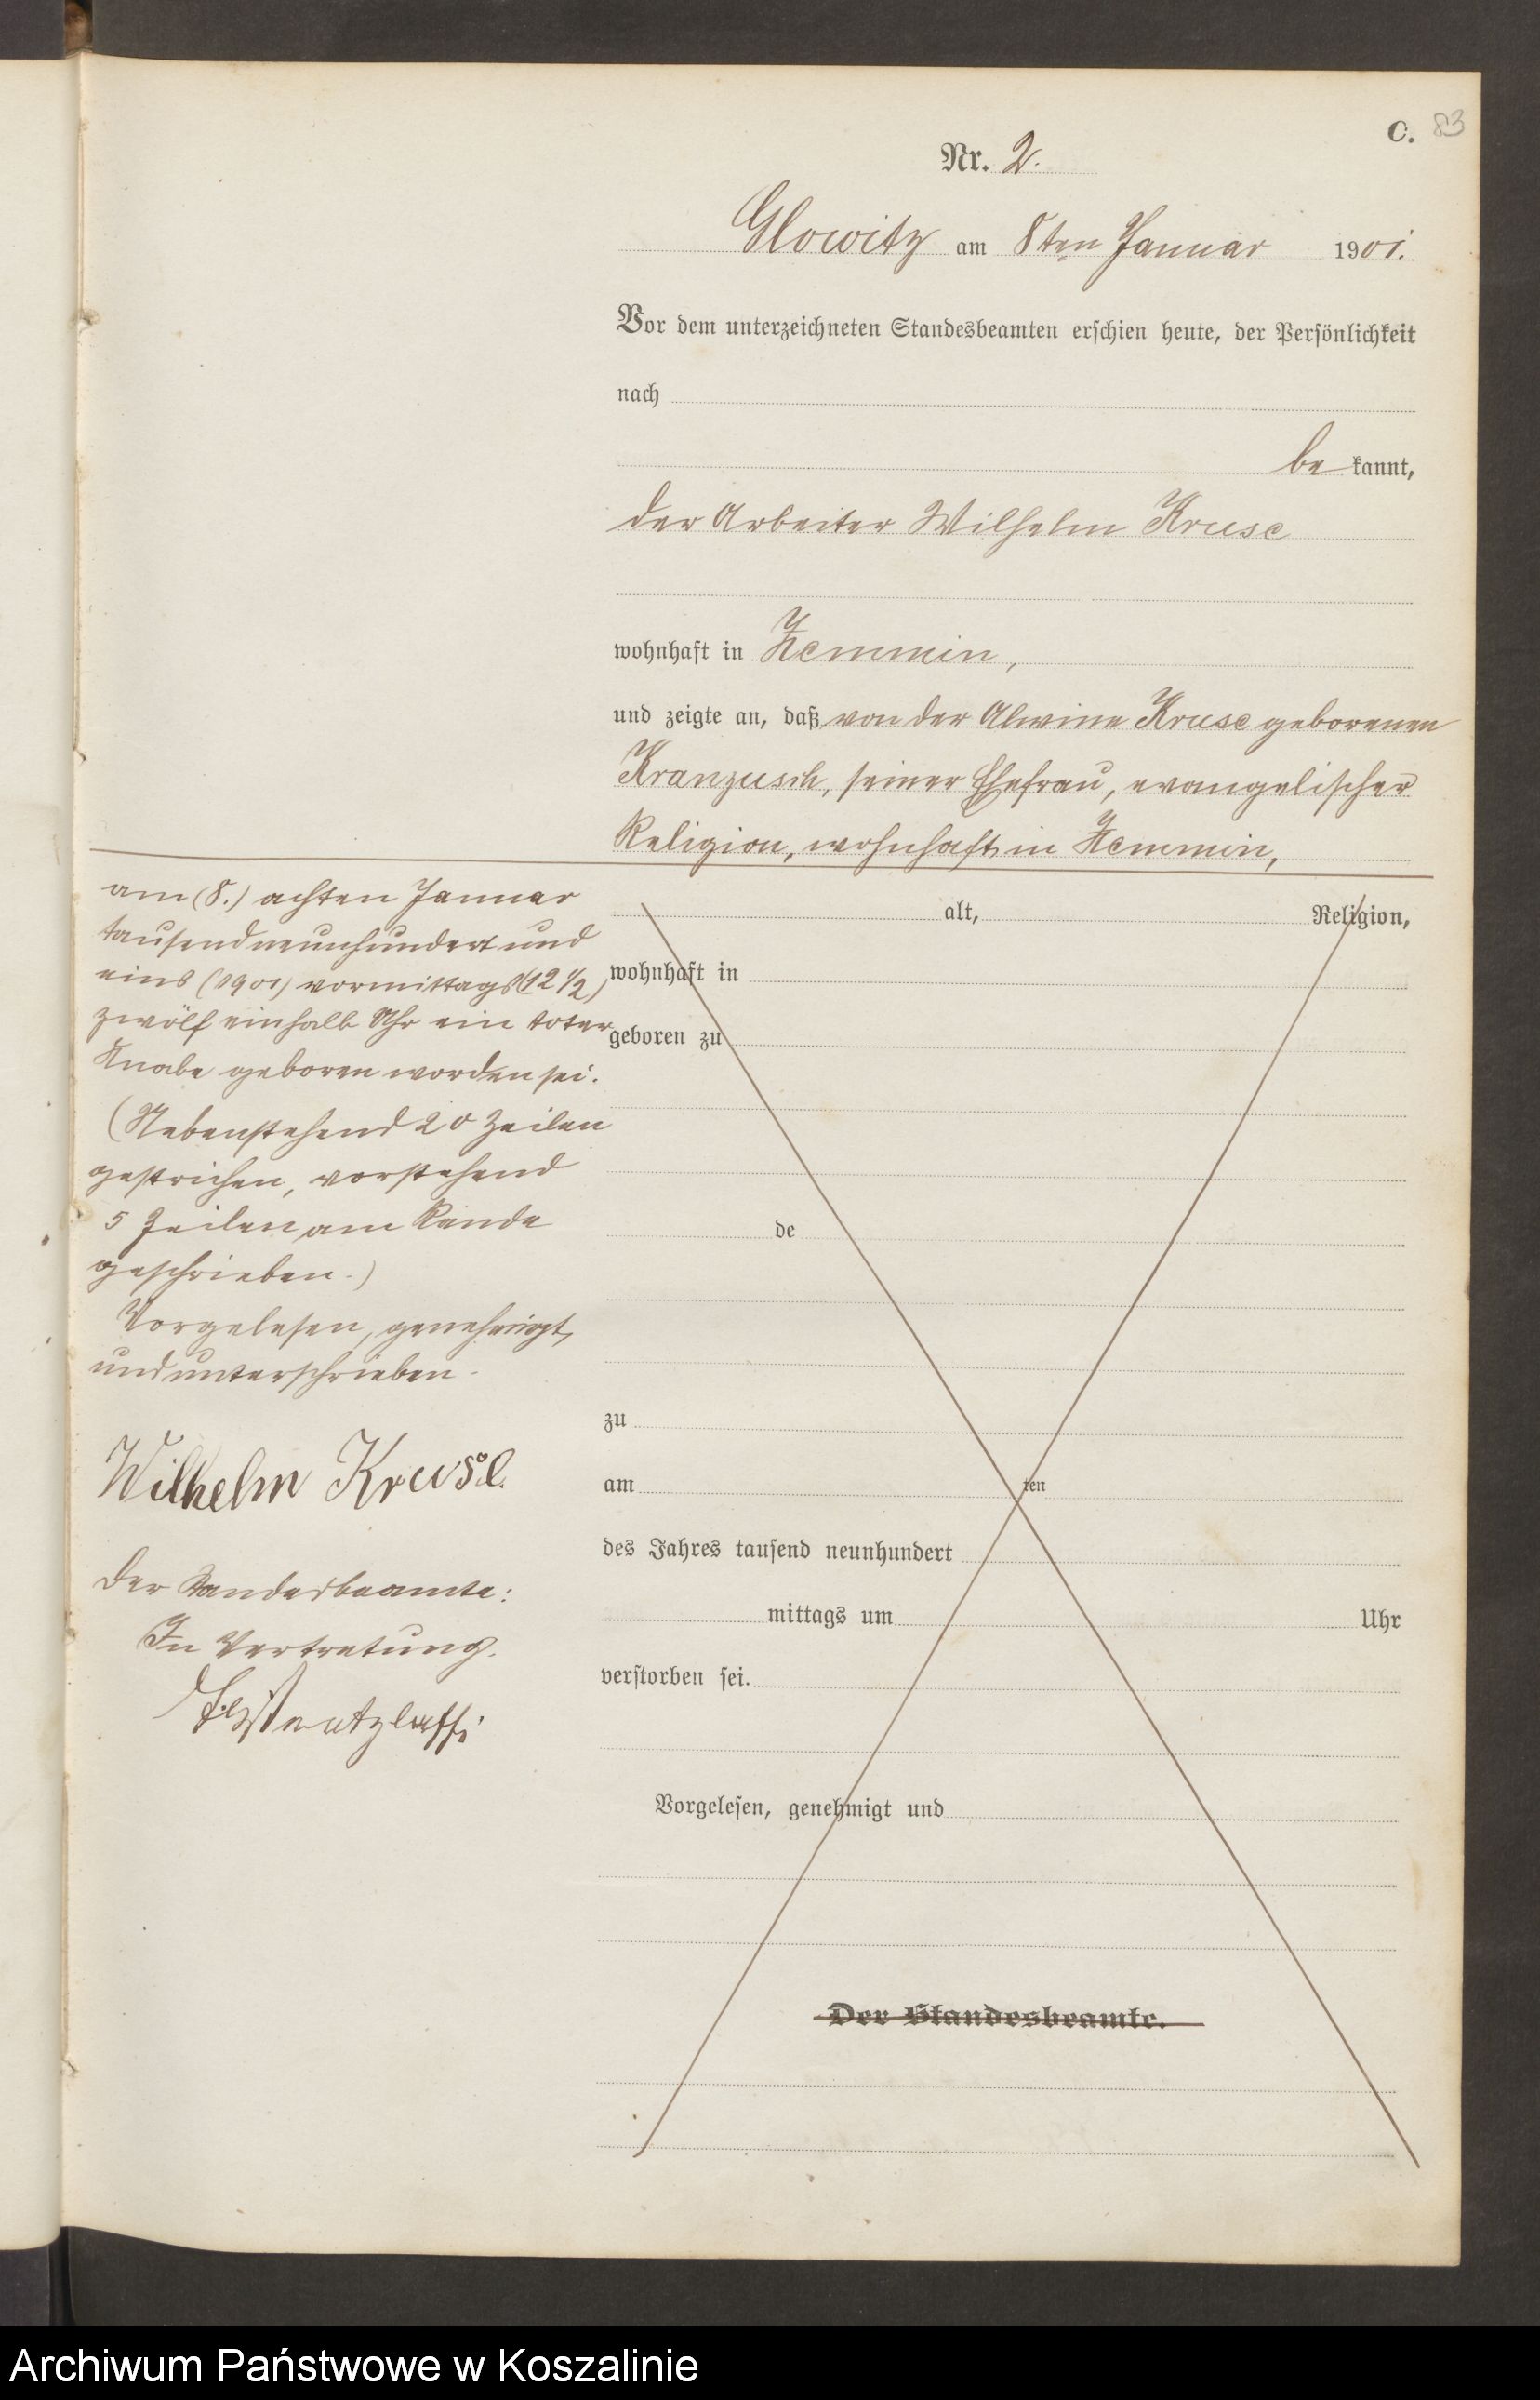 C. 83
Nr. 2.
Glowitz am 8ten Januar 1901.
Vor dem unterzeichneten Standesbeamten erschien heute, der Persönlichkeit
nach
be kannt,
der Arbeiter Wilhelm Kruse
wohnhaft in Zemmin,
und zeigte an, daß von der Alwine Kruse geborenen
Kranzusch, seiner Ehefrau, evangelischer
Religion, wohnhaft in Zemmin,
am (8.) achten Januar
tausendneunhundert und
eins (1901) vormittags (12 1/2)
zwölf einhalb Uhr ein toter
Knabe geboren worden sei.
(Nebenstehend 20 Zeilen
gestrichen, vorstehend
5 Zeilen am Rande
geschrieben.)
Vorgelesen, genehmigt,
und unterschrieben.
Wilhelm Kruse.
Der Standesbeamte:
In Vertretung.
alt, Religion,
wohnhaft in
geboren zu
de
zu
am ten
des Jahres tausend neunhundert
mittags um Uhr
verstorben sei.
Vorgelesen, genehmigt und
Der Standesbeamte.
Archiwum Państwowe w Koszalinie